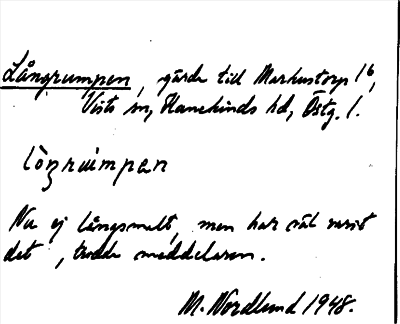 Långrumpen, gärde till Markustorp 1b,
Vists sn, Hanekinds hd, Östg. l.
lòŋrùimpen
Nu ej långsmalt, men har väl varit
det, trodde meddelaren.
M. Nordlund 1948.